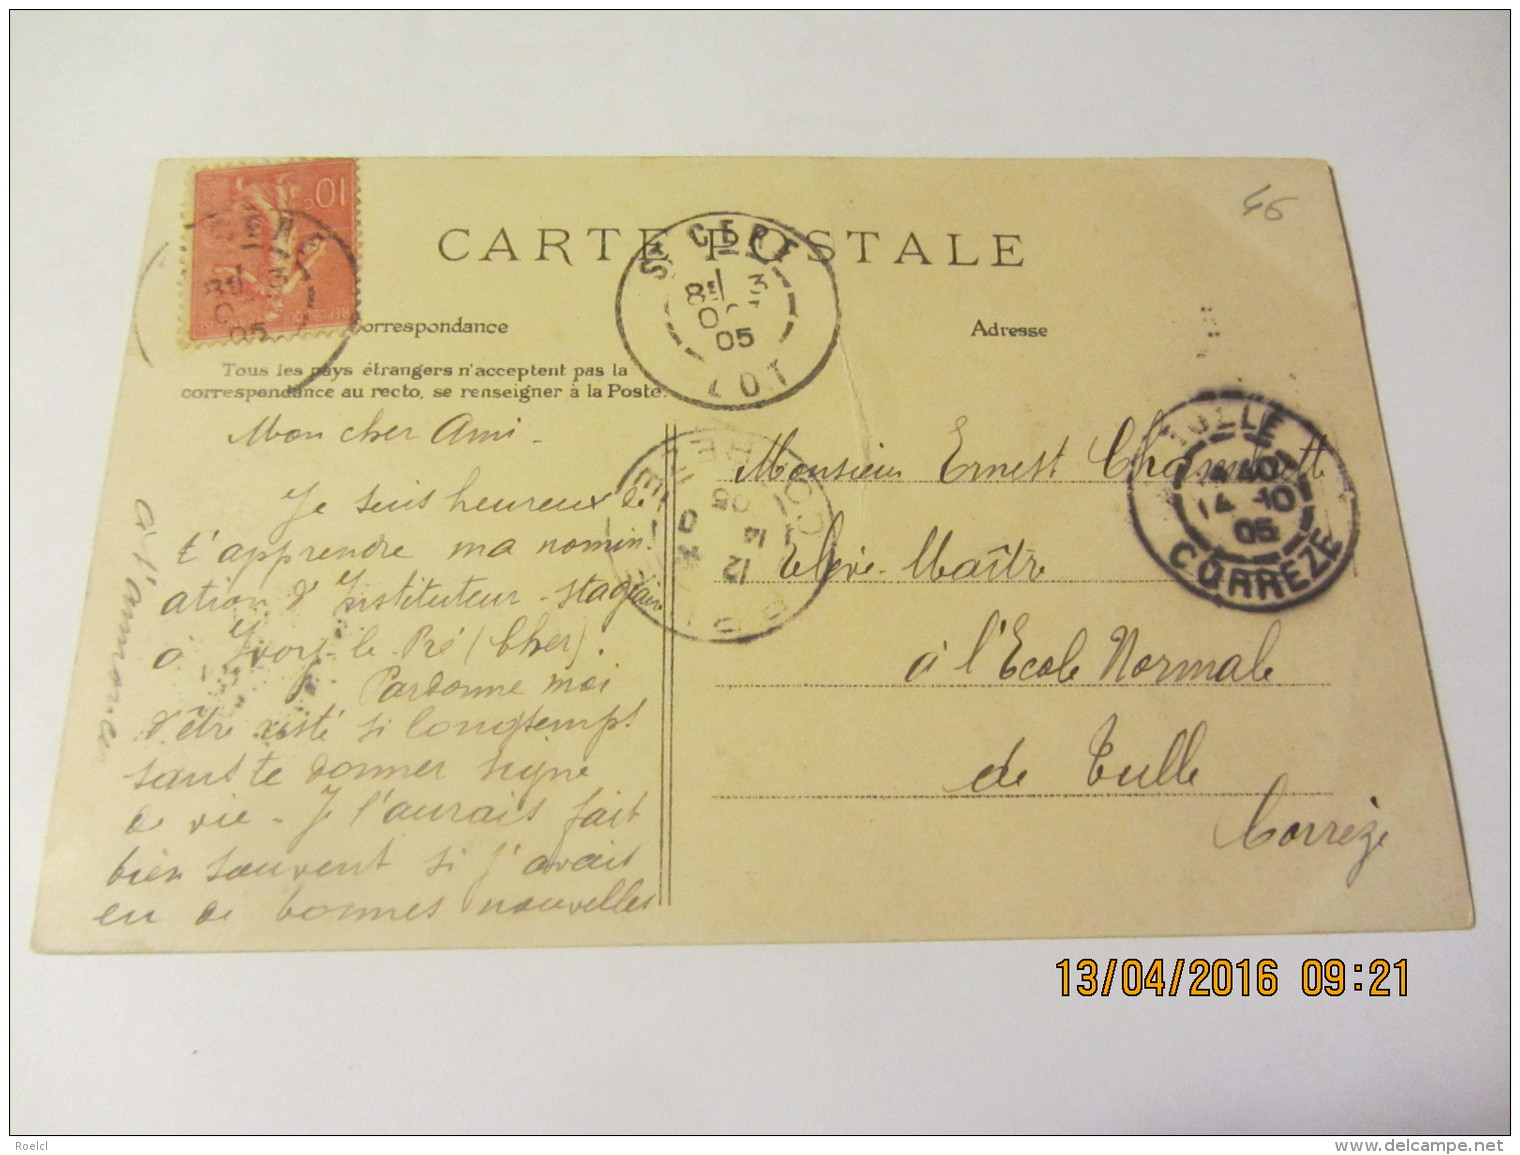 46
10c
CARTE POSTALE
ST CERE
05
ST CERE
8H 3
05
LOT
Correspondance
Adresse
Tous les pays étrangers n'acceptent pas la
correspondance au recto, se renseigner à la Poste.
Mon cher Ami -
Je suis heureux de
t'apprendre ma nomin-
ation d'Instituteur-stagiaire
à Ivoy-le-Pré (Cher).
Pardonne moi
d'être resté si longtemps
sans te donner signe
de vie - Je l'aurais fait
bien souvent si j'avais
eu de bonnes nouvelles
à t'annoncer
12
14
05
Monsieur Ernest
Elève-Maître
à l'Ecole Normale
de Tulle
Corrèze
TULLE
14 10
05
CORREZE
13/04/2016 09:21
Roelcl
www.delcampe.net